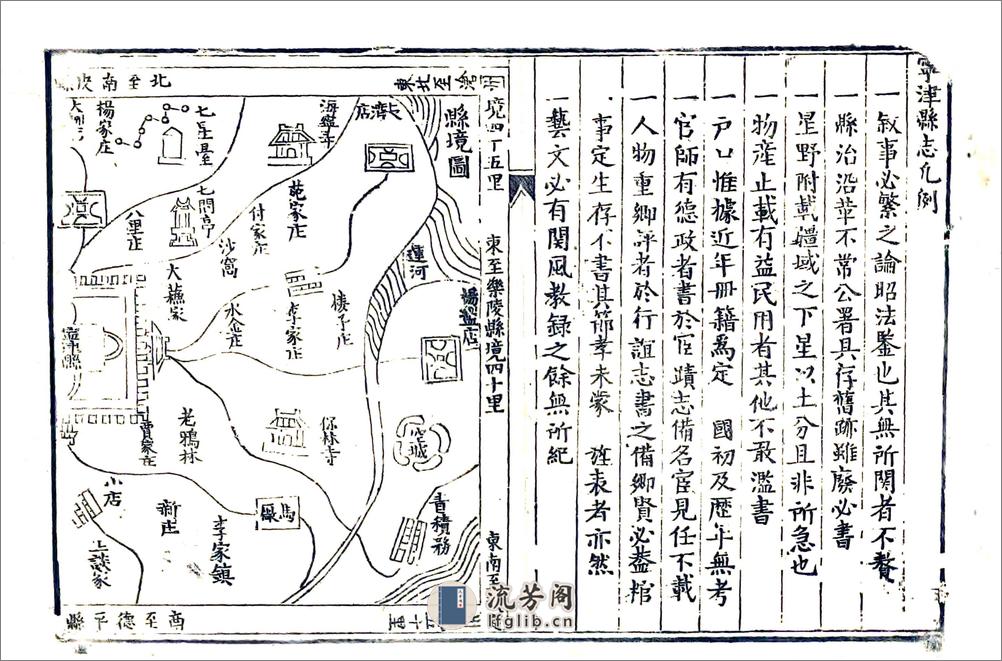 寧津縣志凡例
一叙事必繁之論昭法鑒也其無所関者不贅
一縣治沿革不常公署具存舊跡雖廢必書
一星野附載疆域之下星以土分且非所急也
一物産止載有益民用者其他不敢濫書
一户口惟據近年册籍為定 國初及歷年無考
一官師有德政者書於宦蹟志備名宦見任不載
一人物重鄉評者於行誼志書之備鄉賢必葢棺
事定生存不書其節孝未蒙 旌表者亦然
一藝文必有関風教録之餘無所紀
縣境圖
境四十五里
東至樂陵縣境四十里
東南至
東北至滄
北至南皮
長灣店
海
寺
七星臺
楊家庄
苑家庄
七間亭
付家庄
沙窩
八里庄
大蘓家
運河
楊盤店
李家庄
倭子庄
水仝庄
寧縣
賈家庄
老鴉林
保林寺
城
小店
新庄
李家鎮
馬厰
青積務
上談家
商至德平縣
流芳阁
lfglib.cn